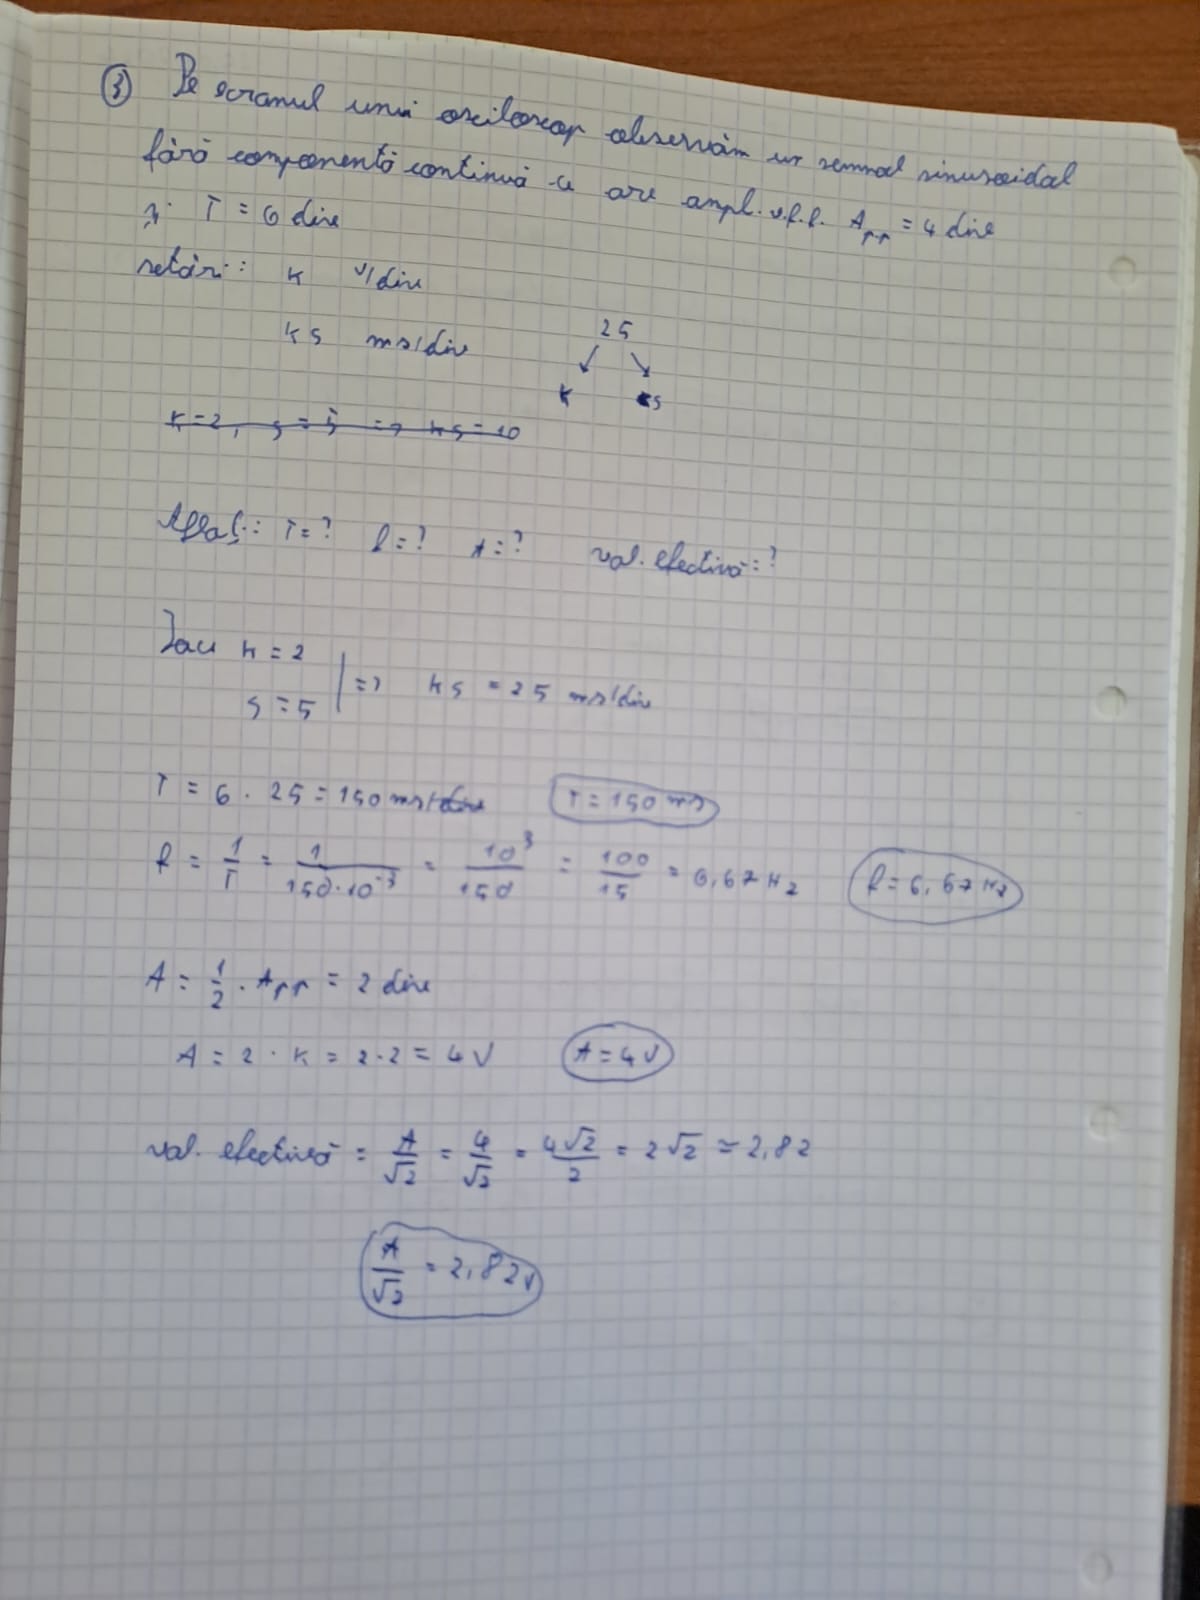 ③ Pe ecranul unui osciloscop observăm un semnal sinusoidal
fără componentă continuă ce are ampl. v.f.f. App = 4 div
și T = 6 div
setări: k V/div
ks ms/div
25
↙ ↘
k s
k=2, s=5 => ks=10
Aflați: T=? f=? A=? val. efectivă=?
Dacă k = 2
s = 5 | => ks = 25 ms/div
T = 6 · 25 = 150 ms/div T = 150 ms
f = 1/T = 1/(150·10⁻³) = 10³/150 = 100/15 = 6,67 Hz f = 6,67 Hz
A = 1/2 · App = 2 div
A = 2 · k = 2·2 = 4 V A = 4 V
val. efectivă = A/√2 = 4/√2 = 4√2/2 = 2√2 ≃ 2,82
A/√2 = 2,82 V